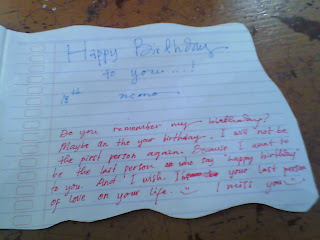 Happy Birthday
to you...!
18th nemo
Do you remember my birthday?
Maybe on the your birthday.. I will not be
the first person again. Because I want to
be the last person who say "happy birthday"
to you. And I wish. I your last person
of love on your life.. I miss you